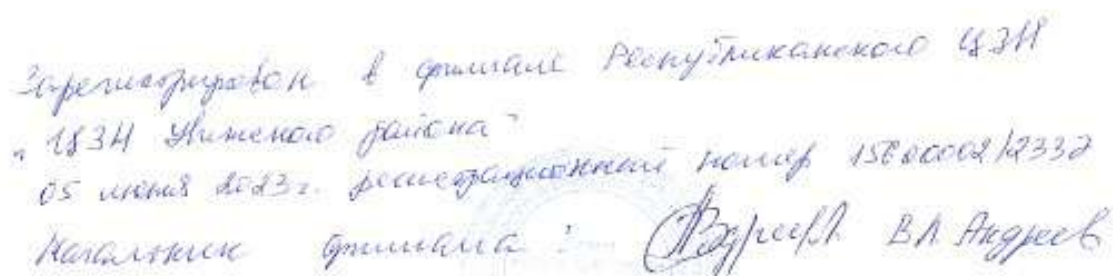 Зарегистрирован в филиале Республиканского ЦЗН
"ЦЗН Увинского района"
05 июня 2023г. регистрационный номер 15600002/2332
Начальник филиала: В.А. Андреев